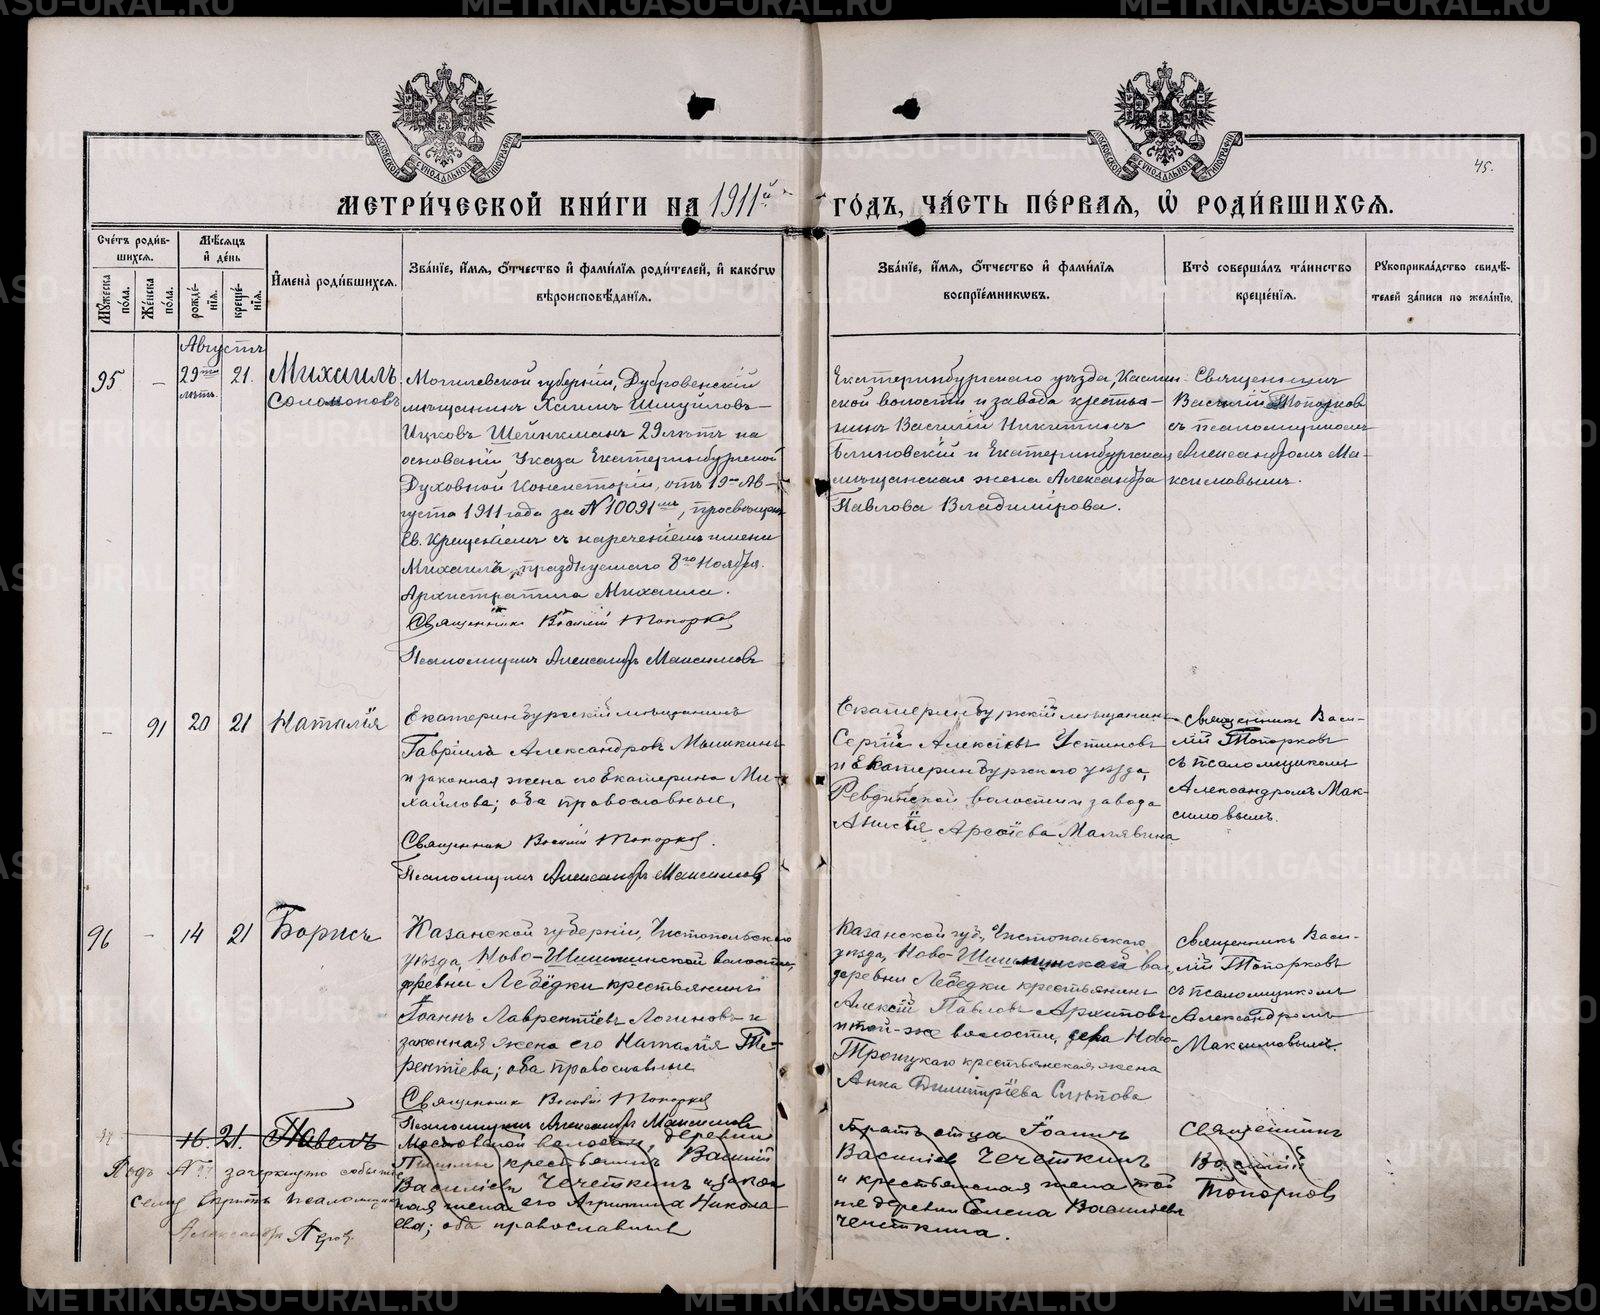 45.
МЕТРИ́ЧЕСКОЙ КНИ́ГИ НА 1911й
ГО́ДЪ, ЧА́СТЬ ПЕ́РВАЯ, Ѡ РОДИ́ВШИХСЯ.
Сче́тъ роди́в-
шихся.
Мꙋ́жеска по́ла.
Же́нска по́ла.
Мѣ́сяцъ
и҆ де́нь
рожде́-
нїѧ.
креще́-
нїѧ.
И҆мена̀ роди́вшихся.
Зва́нїе, и҆́мя, ѻ҆́тчество и҆ фами́лїя роди́телей, и҆ како́гѡ
вѣроисповѣ́данїѧ.
Зва́нїе, и҆́мя, ѻ҆́тчество и҆ фами́лїя
воспрїе́мникѡвъ.
Кто̀ соверша́лъ та́инство
креще́нїѧ.
Рꙋкоприкла́дство свидѣ́-
телей за́писи по жела́нїю.
Августъ
95
–
29ти
лѣтъ.
21.
Михаилъ
Соломоновъ
Могилевской губерніи, Дубровенскій
мѣщанинъ Хаимъ Шмуйловъ-
Ицковъ Шейнкманъ 29 лѣтъ на
основаніи Указа Екатеринбургской
Духовной Консисторіи, отъ 19го Ав-
густа 1911 года за №10091мъ, просвѣщенъ
Св. Крещеніемъ съ нареченіемъ имени
Михаилъ, празднуемаго 8го Ноября.
Архистратига Михаила.
Священникъ Василій Топорковъ
Псаломщикъ Александръ Максимовъ
Екатеринбургскаго уѣзда, Каслин-
ской волости и завода крестья-
нинъ Василій Никитинъ
Блиновскій и Екатеринбургская
мѣщанская жена Александра
Павлова Владимірова.
Священникъ
Василій Топорковъ
съ псаломщикомъ
Александромъ Ма-
ксимовымъ.
–
91
20
21
Наталія
Екатеринбургскій мѣщанинъ
Гавріилъ Александровъ Мышкинъ
и законная жена его Екатерина Ми-
хайлова; оба православные,
Священникъ Василій Топорковъ.
Псаломщикъ Александръ Максимовъ
Екатеринбургскій мѣщанинъ
Сергій Алексіевъ Устиновъ
и Екатеринбургскаго уѣзда,
Ревдинской волости и завода
Анисія Арсіева Малявина
Священникъ Васи-
лій Топорковъ
съ псаломщикомъ
Александромъ Мак-
симовымъ.
96
–
14
21
Борисъ
Казанской губерніи, Чистопольскаго
уѣзда, Ново-Шишминской волости,
деревни Лебёдки крестьянинъ
Іоаннъ Лаврентіевъ Логиновъ и
законная жена его Наталія Те-
рентіева; оба православные
Священникъ Василій Топорковъ
Псаломщикъ Александръ Максимовъ
Казанской губ., Чистопольскаго
уѣзда, Ново-Шишминской вол,
деревни Лебедки крестьянинъ
Алексій Павловъ Архиповъ
и той-же волости, села Ново-
Троицкаго крестьянская жена
Анна Димитріева Слѣпова
Священникъ Васи-
лій Топорковъ
съ псаломщикомъ
Александромъ
Максимовымъ.
16
21.
Павелъ
Мостовской волости, деревни
крестьянинъ Василій
Василіевъ Чечеткинъ и закон-
ная жена его Агрипина Никола-
ева; оба православные
Братъ отца Іоаннъ
Василіевъ Чечеткинъ
и крестьянская жена той
же деревни Елена Василіева
Чечеткина.
Священникъ
Василій
Топорковъ
Подъ № 97 зачеркнуто событіе
сему вѣрить псаломщикъ
Александръ
METRIKI.GASO-URAL.RU